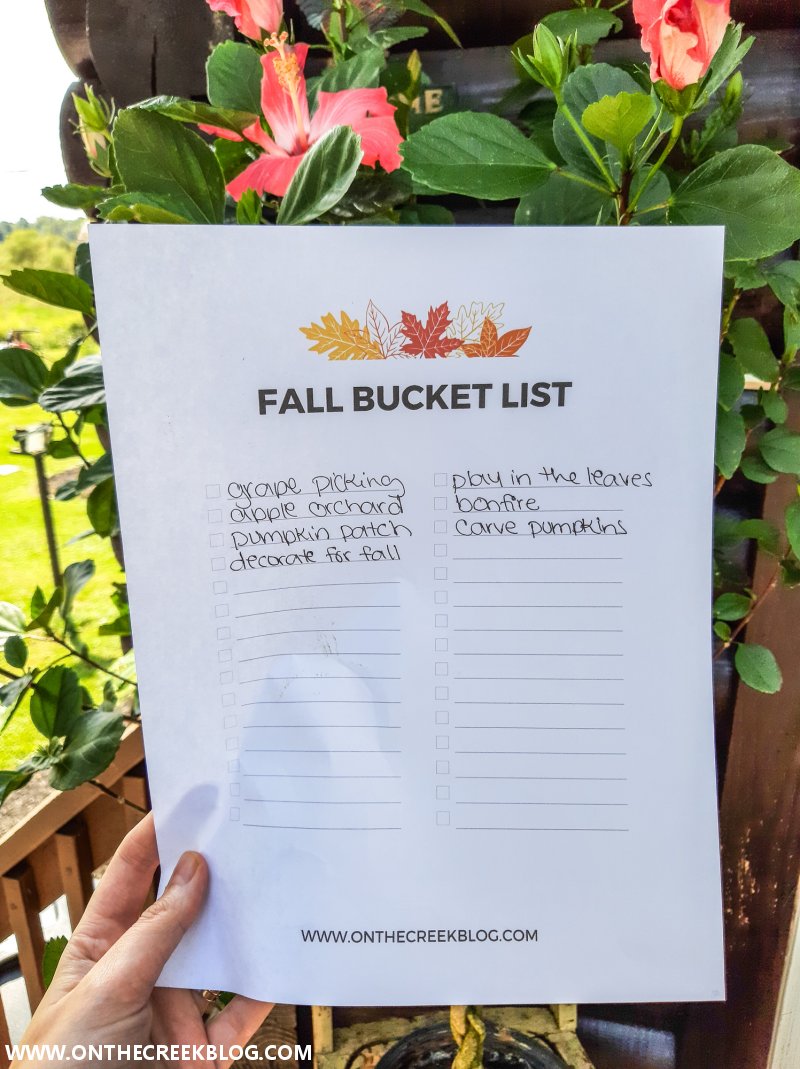 ME
FALL BUCKET LIST
grape picking
apple orchard
pumpkin patch
decorate for fall
play in the leaves
bonfire
carve pumpkins
WWW.ONTHECREEKBLOG.COM
WWW.ONTHECREEKBLOG.COM